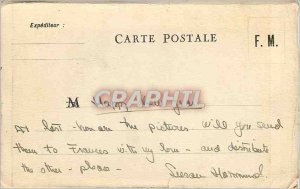 Expéditeur :
CARTE POSTALE
F. M.
CARTE-PHILA
M Happy New Year
At last - here are the pictures. Will you send
them to Frances with my love - and distribute
the other - please - Susan Hammond